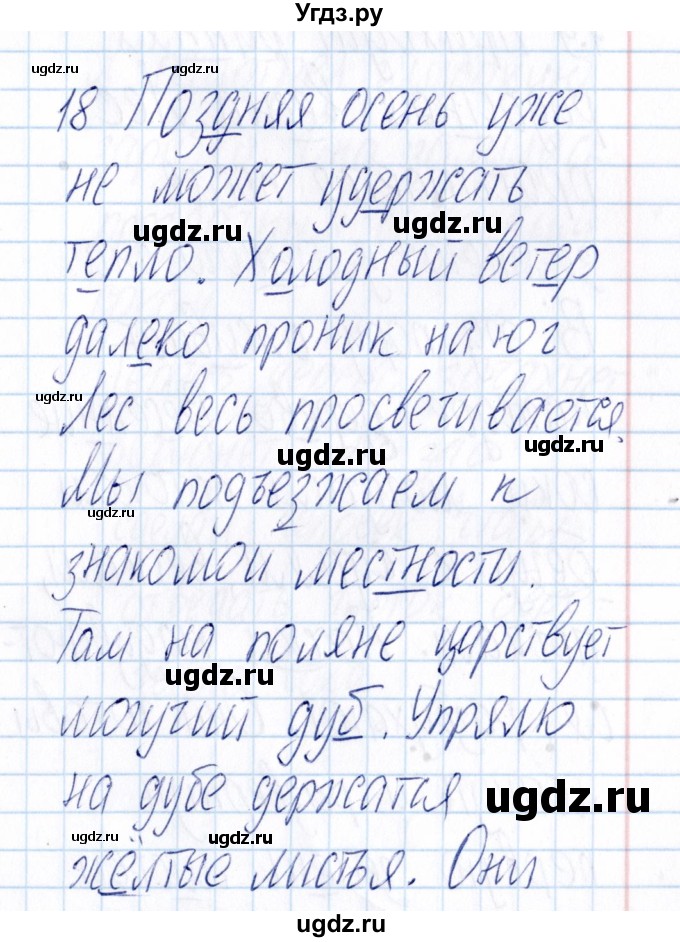 Угдз.ру
ugdz.ru ugdz.ru
18 Поздняя осень уже
не может удержать
ugdz.ru ugdz.ru
тепло. Холодный ветер
далеко проник на юг
ugdz.ru
Лес весь просвечивается.
ugdz.ru ugdz.ru
Мы подъезжаем к
ugdz.ru
знакомой местности.
Там на поляне царствует
ugdz.ru ugdz.ru
могучий дуб. Упрямо
на дубе держатся
ugdz.ru
ugdz.ru ugdz.ru
жёлтые листья. Они
ugdz.ru ugdz.ru
ugdz.ru